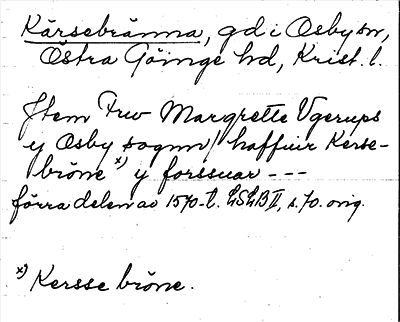 Kärsebränna, gd i Osby sn,
Östra Göinge hd, Krist. l.
Jtem Frw Margrette Vgerups
y Osby sognn/ haffuir Kerse-
bröne x) y forssuar ---
förra delen av 1570-t. LSLB II, s. 70. orig.
x) Kersse bröne.